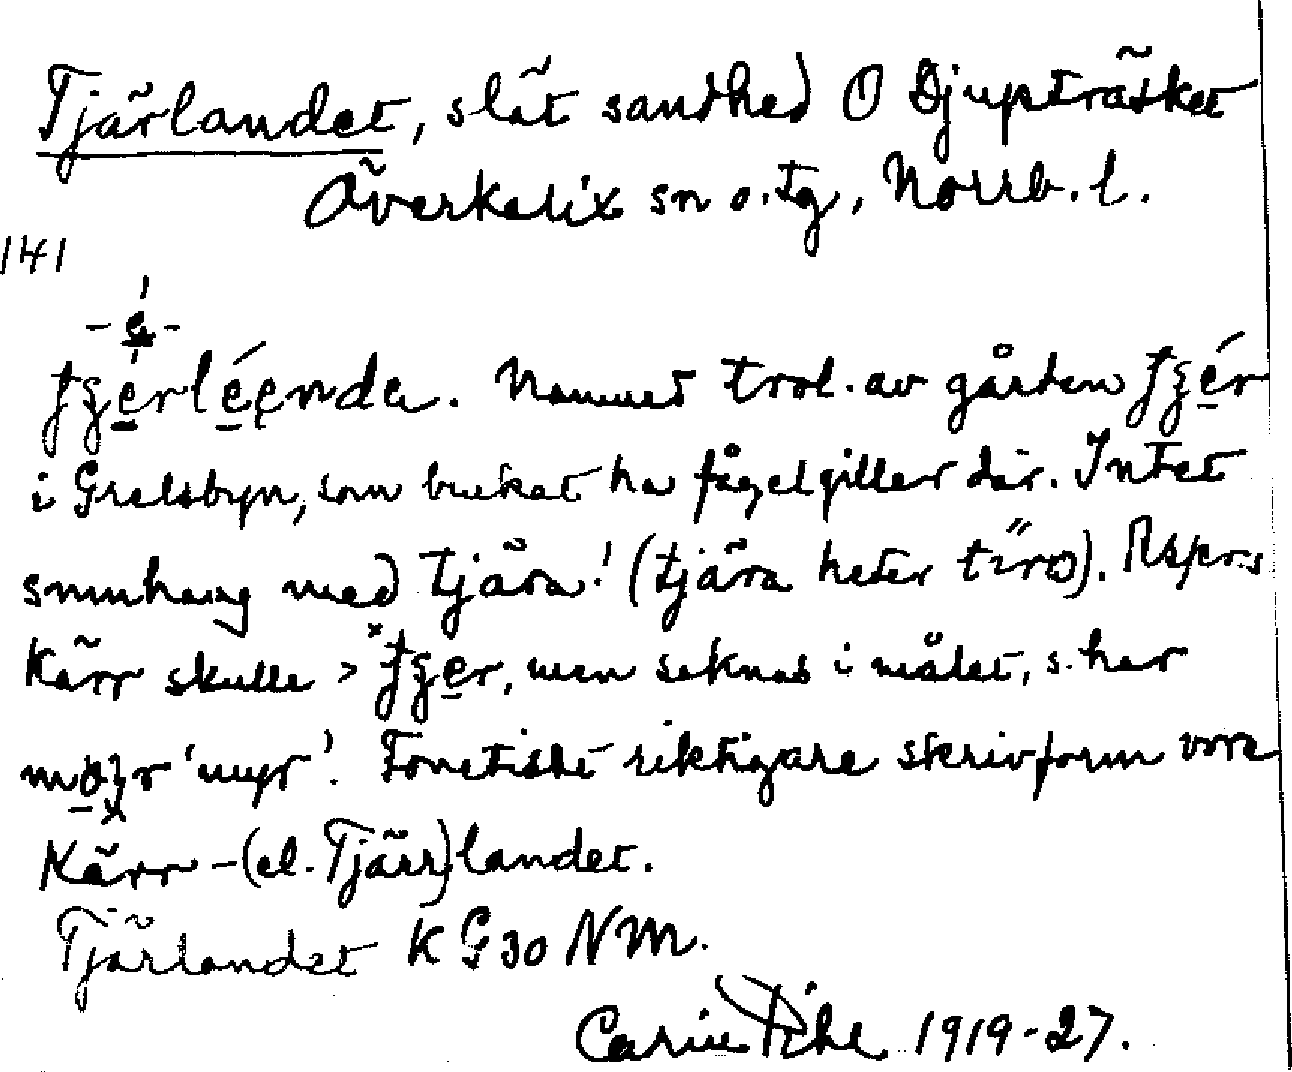 Tjärlandet, slät sandhed O Djupträsket
Överkalix sn o. tg, Norrb. l.
141
Namnet trol. av gården
i Grelsbyn, som brukat ha fågelgiller där. Intet
smnhang med tjära! (tjära heter tı̋ro). Rspr:s
Kärr skulle > men saknas i målet, s. har
'myr'. Fonetiskt riktigare skrivform vore
Kärr-(el. Tjärr)landet.
Tjärlandet K G30 NM.
Carin Pihl 1919-27.